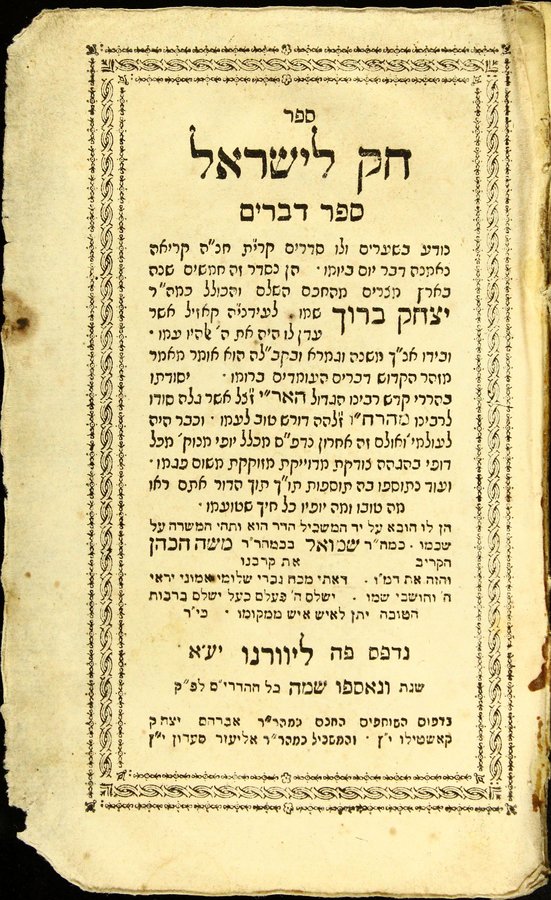 ספר
חק לישראל
ספר דברים
נודע בשערים ולו סדרים קרי"ת חנ"ה קריאה
נאמנה דבר יום ביומו · הן נסדר זה חמשים שנה
בארץ מצרים מהחכם השלם והכולל כמה"ר
יצחק ברוך שמו · לעידניה קאזיל אשר
עדן לו היה את ה' אלהיו עמו ·
ובידו אנ"ך משנה וגמרא ובקב"לה הוא אומר מאמר
מזהר הקדוש דברים העומדים ברומו · יסודתו
בהררי קדש רבינו הגדול האר"י ז"כל אשר גלה סודו
לרבינו מהרח"ו זלה"ה דורש טוב לעמו · וכבר היה
לעולמי' ואולם זה אחרון נדפ"ס מכלל יופי מנוק' מכל
דופי בהגהה בודקת מדוייקת מזוקקת משום פגמו ·
ועוד נתוספו בה תוספות תו"ך תוך הדור אתם ראו
מה טובו ומה יופיו כל חיך שטועמו ·
הן לו הובא על יד המשכיל הדר הוא ותהי המשרה על
שכמו · כמה"ר שמואל בכמהר"ר משה הכהן
הקריב את קרבנו
והזה את דמ"ו · דאתי מכח גברי שלומי אמוני יראי
ה' וחושבי שמו · ישלם ה' פעלם כעל ישלם ברבות
הטובה יתן לאיש איש ממקומו · כי"ר
נדפס פה ליוורנו יע"א
שנת ונאספו שמה כל ההדרי"ם לפ"ק
בדפוס השותפים החכם כמהר"ר אברהם יצחק
קאשטילו י"ץ · והמשכיל כמהר"ר אליעזר סעדון י"ץ